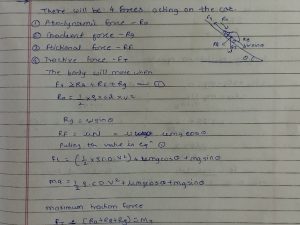 There will be 4 forces acting on the car.
① Aerodynamic force - Ra
② Gradient force - Rg
③ Frictional force - RF
④ Tractive force - FT
The body will move when
FT ≥ Ra + RF + Rg — ①
Ra = 1/2 × ρ × cd × v²
Rg = w sinθ
RF = μN = μmg cosθ
Putting the value in eqⁿ ①
FL = (1/2 × ρ C D V²) + μmg cosθ + mg sinθ
ma = 1/2 ρ. C D. V² + μmg cosθ + mg sinθ
maximum traction force
FT ≥ (Ra + RF + Rg) = Ma